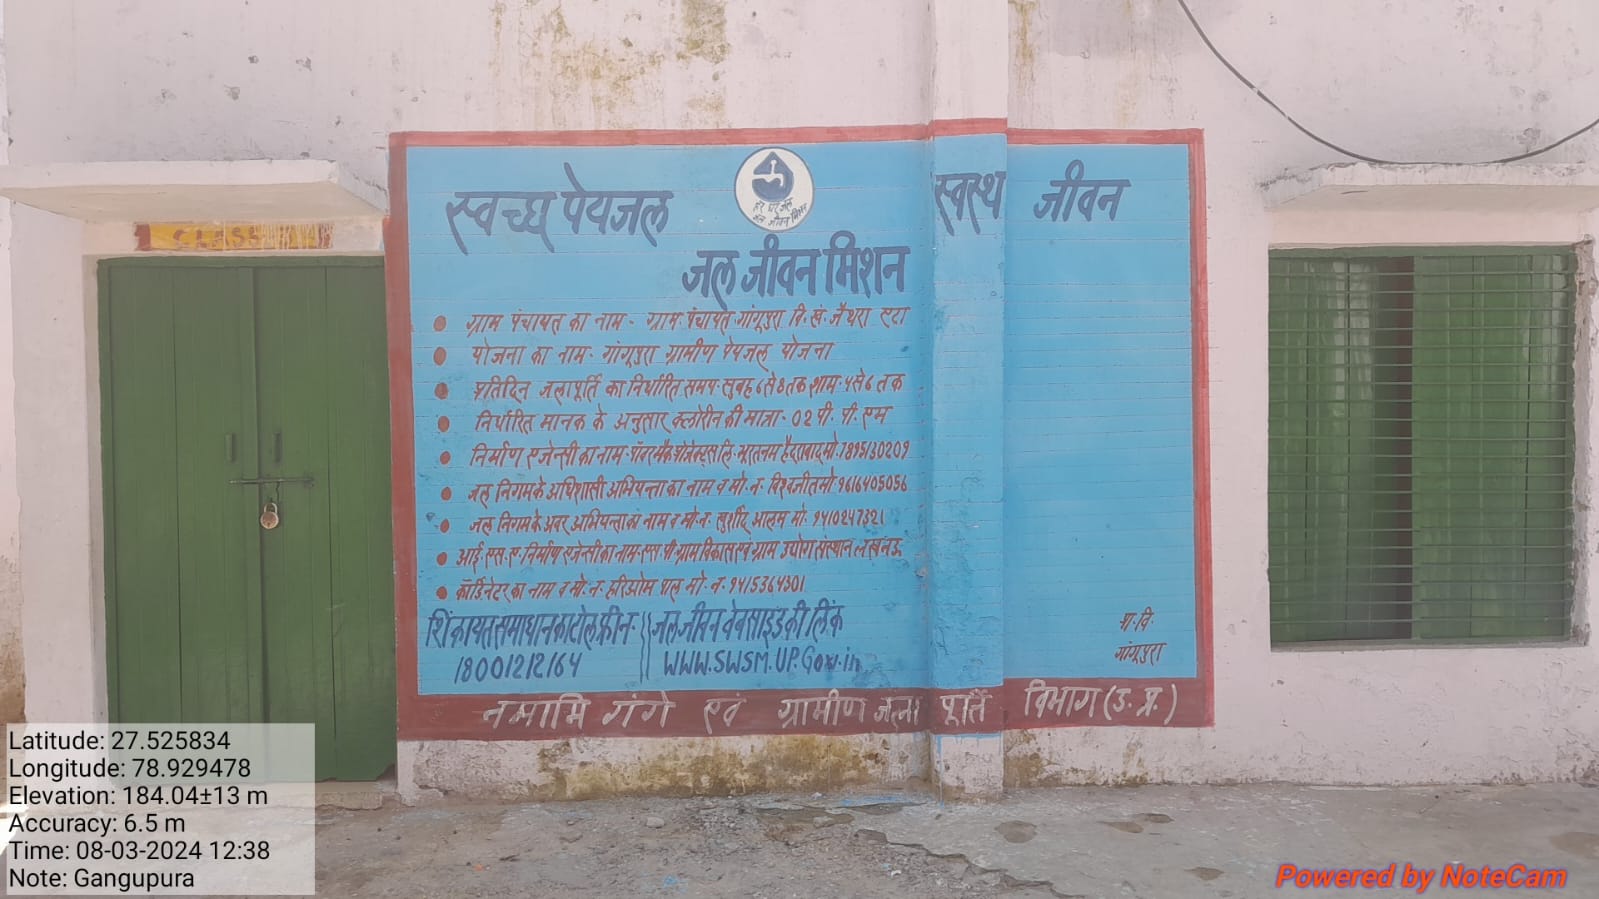 CLASS
स्वच्छ पेयजल
हर घर जल
जल जीवन मिशन
स्वस्थ जीवन
जल जीवन मिशन
ग्राम पंचायत का नाम - ग्राम पंचायत गांगूपुरा वि.खं. जैथरा एटा
योजना का नाम - गांगूपुरा ग्रामीण पेयजल योजना
प्रतिदिन जलापूर्ति का निर्धारित समय - सुबह 6 से 8 तक शाम - ५ से 6 तक
निर्धारित मानक के अनुसार क्लोरीन की मात्रा - 02 पी. पी. एम
निर्माण एजेन्सी का नाम - पॉवरमैक प्रोजेक्ट्स लि. हैदराबाद मो.
जल निगम के अधिशासी अभियन्ता का नाम व मो. न. विश्वजीत मो १616405056
जल निगम के अवर अभियन्ता का नाम व मो. न. खुर्शीद आलम मो. १५10247321
आई. एस. ए. निर्माण एजेन्सी का नाम - एस. पी. ग्राम विकास एवं ग्राम उद्योग संस्थान लखनऊ
कॉर्डिनेटर का नाम व मो. न. हरिओम पाल मो. न. १५15364301
शिकायत समाधान का टोल फ्री न. || जल जीवन वेबसाइड की लिंक
18001212164 || WWW.SWSM.UP.Gov.in
प्रा. वि.
गांगूपुरा
नमामि गंगे एवं ग्रामीण जला पूर्ति विभाग (उ. प्र.)
Latitude: 27.525834
Longitude: 78.929478
Elevation: 184.04±13 m
Accuracy: 6.5 m
Time: 08-03-2024 12:38
Note: Gangupura
Powered by NoteCam